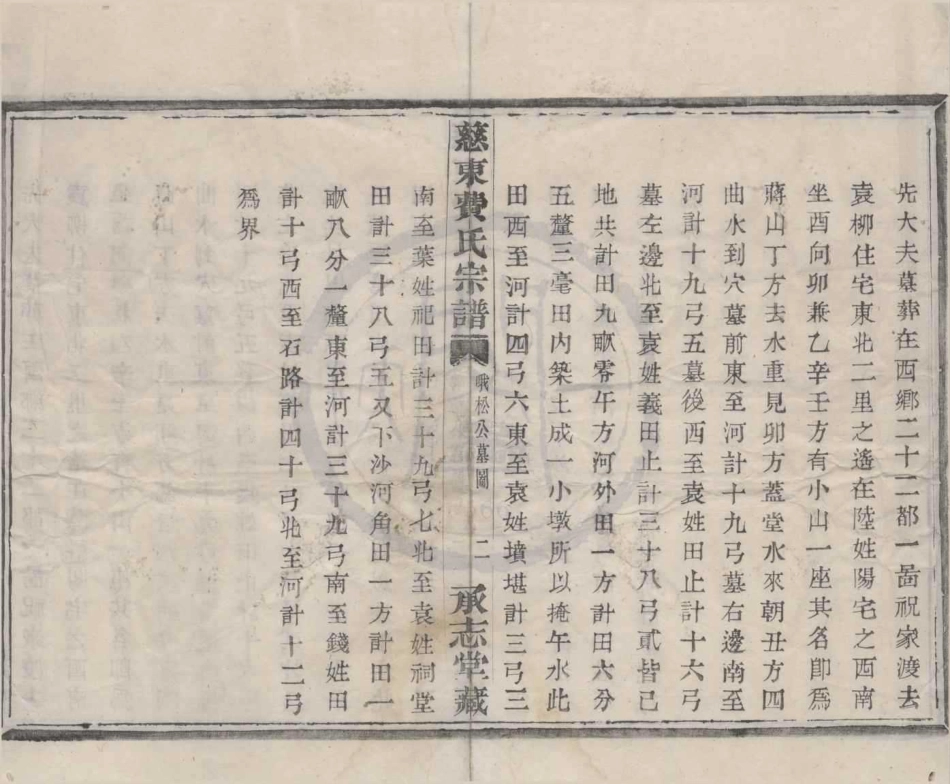 先大夫墓葬在西鄉二十二都一啚祝家渡去
袁柳住宅東北二里之遙在陸姓陽宅之西南
坐酉向卯兼乙辛壬方有小山一座其名卽爲
蔣山丁方去水重見卯方蓋堂水來朝丑方四
曲水到穴墓前東至河計十九弓墓右邊南至
河計十九弓五墓後西至袁姓田止計十六弓
墓左邊北至袁姓義田止計三十八弓貳皆己
地共計田九畝零午方河外田一方計田六分
五釐三毫田內築土成一小墩所以掩午水此
田西至河計四弓六東至袁姓墳堪計三弓三
慈東費氏宗譜 哦松公墓圖 二 承志堂藏
南至葉姓祀田計三十九弓七北至袁姓祠堂
田計三十八弓五又下沙河角田一方計田一
畝八分一釐東至河計三十九弓南至錢姓田
計十弓西至石路計四十弓北至河計十二弓
爲界